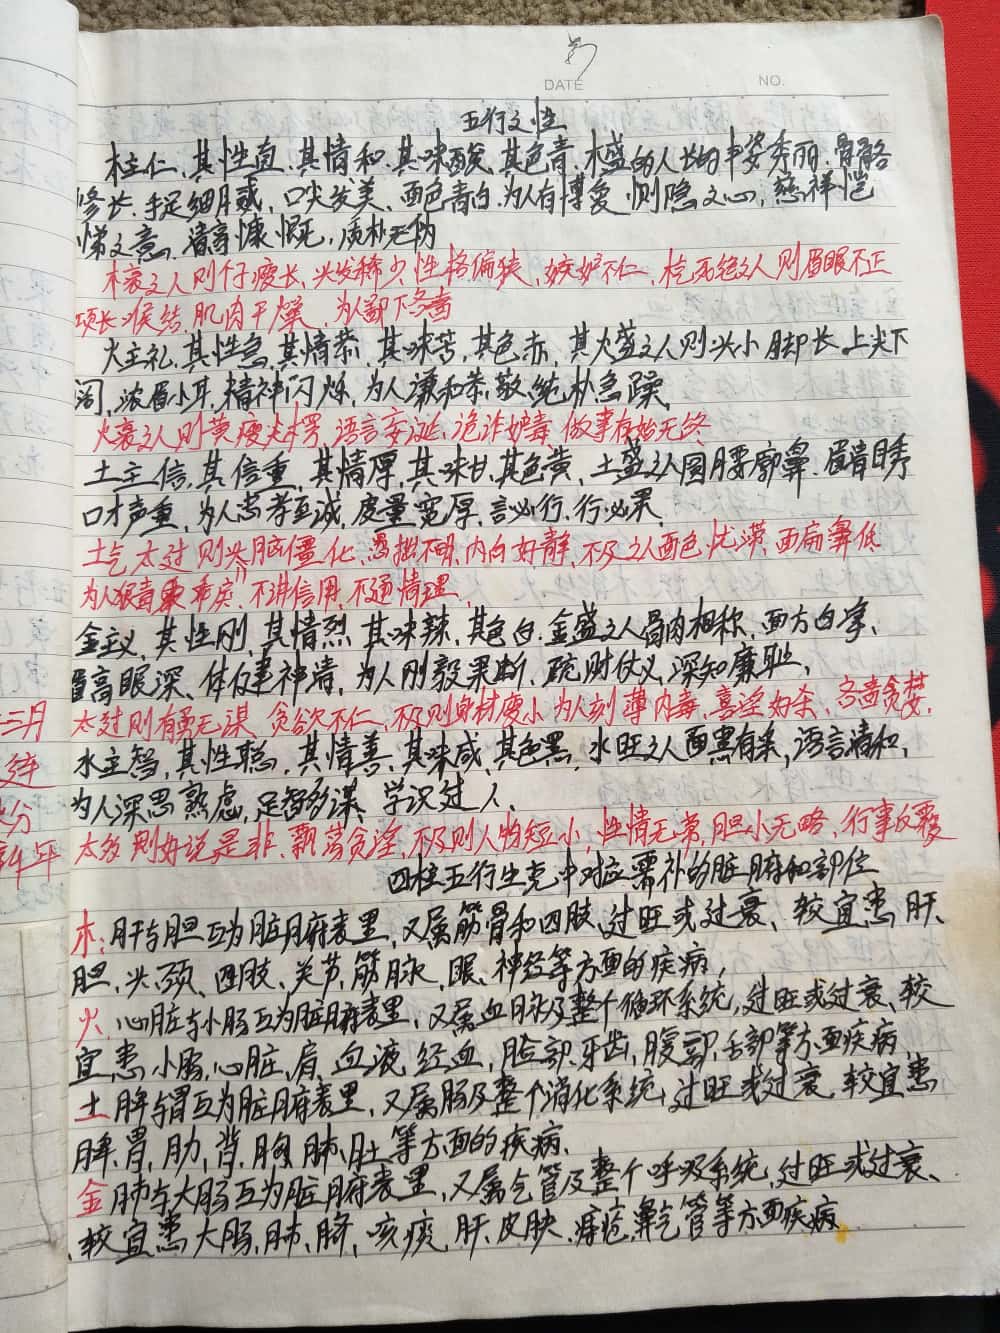 DATE NO.
五行之性
木主仁、其性直、其情和、其味酸、其色青、木盛的人长的丰姿秀丽、骨骼
修长、手足细腻、口尖发美、面色青白、为人有博爱恻隐之心、慈祥恺
悌之意、清高慷慨、质朴无伪
木衰之人则仔瘦长、头发稀少、性格偏狭、嫉妒不仁、枯死绝之人则眉眼不正
项长喉结、肌肉干燥、为人鄙下吝啬
火主礼、其性急、其情恭、其味苦、其色赤、其火盛之人则头小脚长、上尖下
阔、浓眉小耳、精神闪烁、为人谦和恭敬、纯朴急躁、
火衰之人则黄瘦尖楞、语言妄诞、诡诈妒毒、做事有始无终
土主信、其信重、其情厚、其味甘、其色黄、土盛之人圆腰廓鼻、眉清目秀
口才声重、为人忠孝至诚、度量宽厚、言必行、行必果、
土气太过则头脑僵化、愚拙不明、内向好静、不及之人面色忧滞、面扁鼻低
为人狠毒乖戾、不讲信用、不通情理、
金主义、其性刚、其情烈、其味辣、其色白、金盛之人骨肉相称、面方白净、
眉高眼深、体健神清、为人刚毅果断、疏财仗义、深知廉耻、
太过则有勇无谋、贪欲不仁、不及则身材瘦小、为人刻薄内毒、喜淫好杀、吝啬贪婪、
水主智、其性聪、其情善、其味咸、其色黑、水旺之人面黑有采、语言清和、
为人深思熟虑、足智多谋、学识过人、
太多则好说是非、飘荡贪淫、不及则人物短小、性情无常、胆小无略、行事反覆
四柱五行生克中对应需补的脏腑和部位
木：肝与胆互为脏腑表里、又属筋骨和四肢、过旺或过衰、较宜患肝、
胆、头、颈、四肢、关节、筋脉、眼、神经等方面的疾病，
火、心脏与小肠互为脏腑表里、又属血脉及整个循环系统，过旺或过衰、较
宜患小肠、心脏、肩、血液、经血、脸部、牙齿、腹部、舌部等方面疾病、
土 脾与胃互为脏腑表里、又属肠及整个消化系统、过旺或过衰、较宜患
脾、胃、肋、背、胸、肺、肚等方面的疾病、
金 肺与大肠互为脏腑表里、又属气管及整个呼吸系统、过旺或过衰、
较宜患大肠、肺、脐、咳痰、肝、皮肤、痔疮、鼻气管等方面疾病
三月